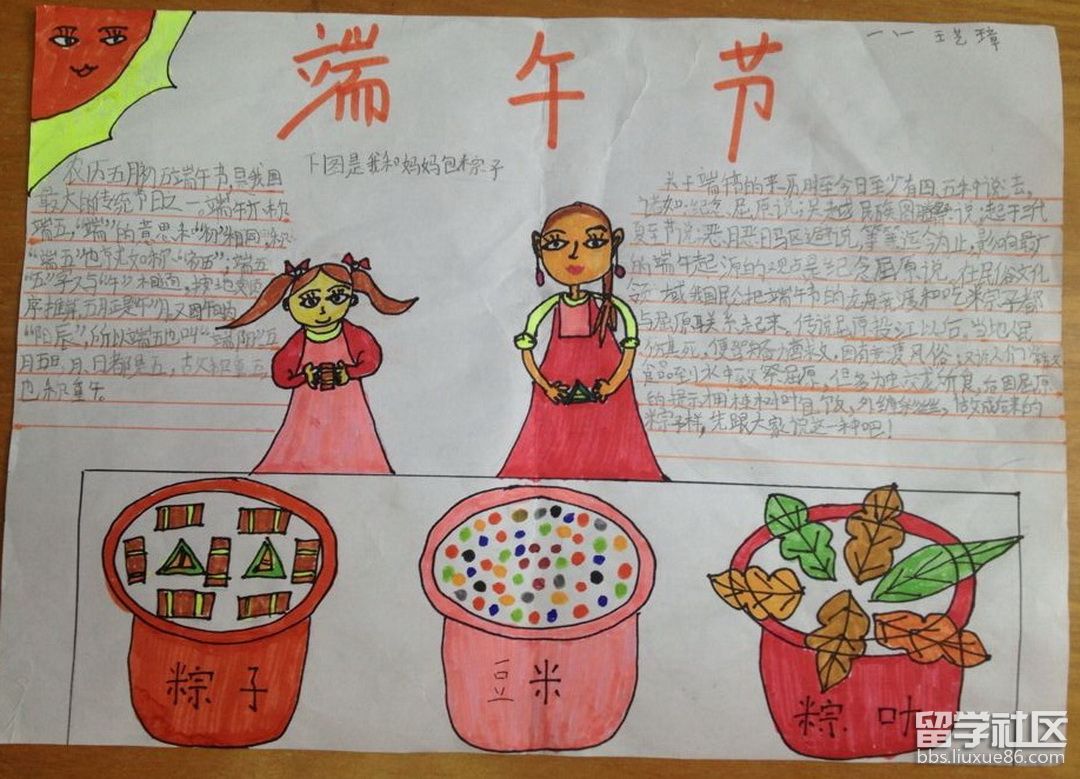 端午节
一、一 王艺璋
下图是我和妈妈包粽子
农历五月初五端午节,是我国
最大的传统节日之一。端午亦称
端五,“端”的意思和“初”相同,称
“端五”也就如称“初五”;端五
“五”字又与“午”相通,按地支
序推算,五月正是“午”月。又因午时为
“阳辰”,所以端五也叫“端阳”。五
月五日,月、日都是五,故又称重五,
也称重午。
关于端午节的来历,时至今日至少有四、五种说法,
诸如:纪念屈原说;吴越民族图腾祭说;起于三代
夏至节说;恶月恶日驱避说,等等。迄今为止,影响最广
的端午起源的观点是纪念屈原说。在民俗文化
领域,我国民众把端午节的龙舟竞渡和吃粽子都
与屈原联系起来。传说屈原投江以后,当地
伤其死,便驾舟奋力营救,因有竞渡风俗;又说人们常放
食品到水中致祭屈原,但多为蛟龙所食,后因屈原
的提示用楝树叶包饭,外缠彩丝,做成后来的
粽子样,先跟大家说这一种吧!
粽子
豆米
粽叶
留学社区
bbs.liuxue86.com